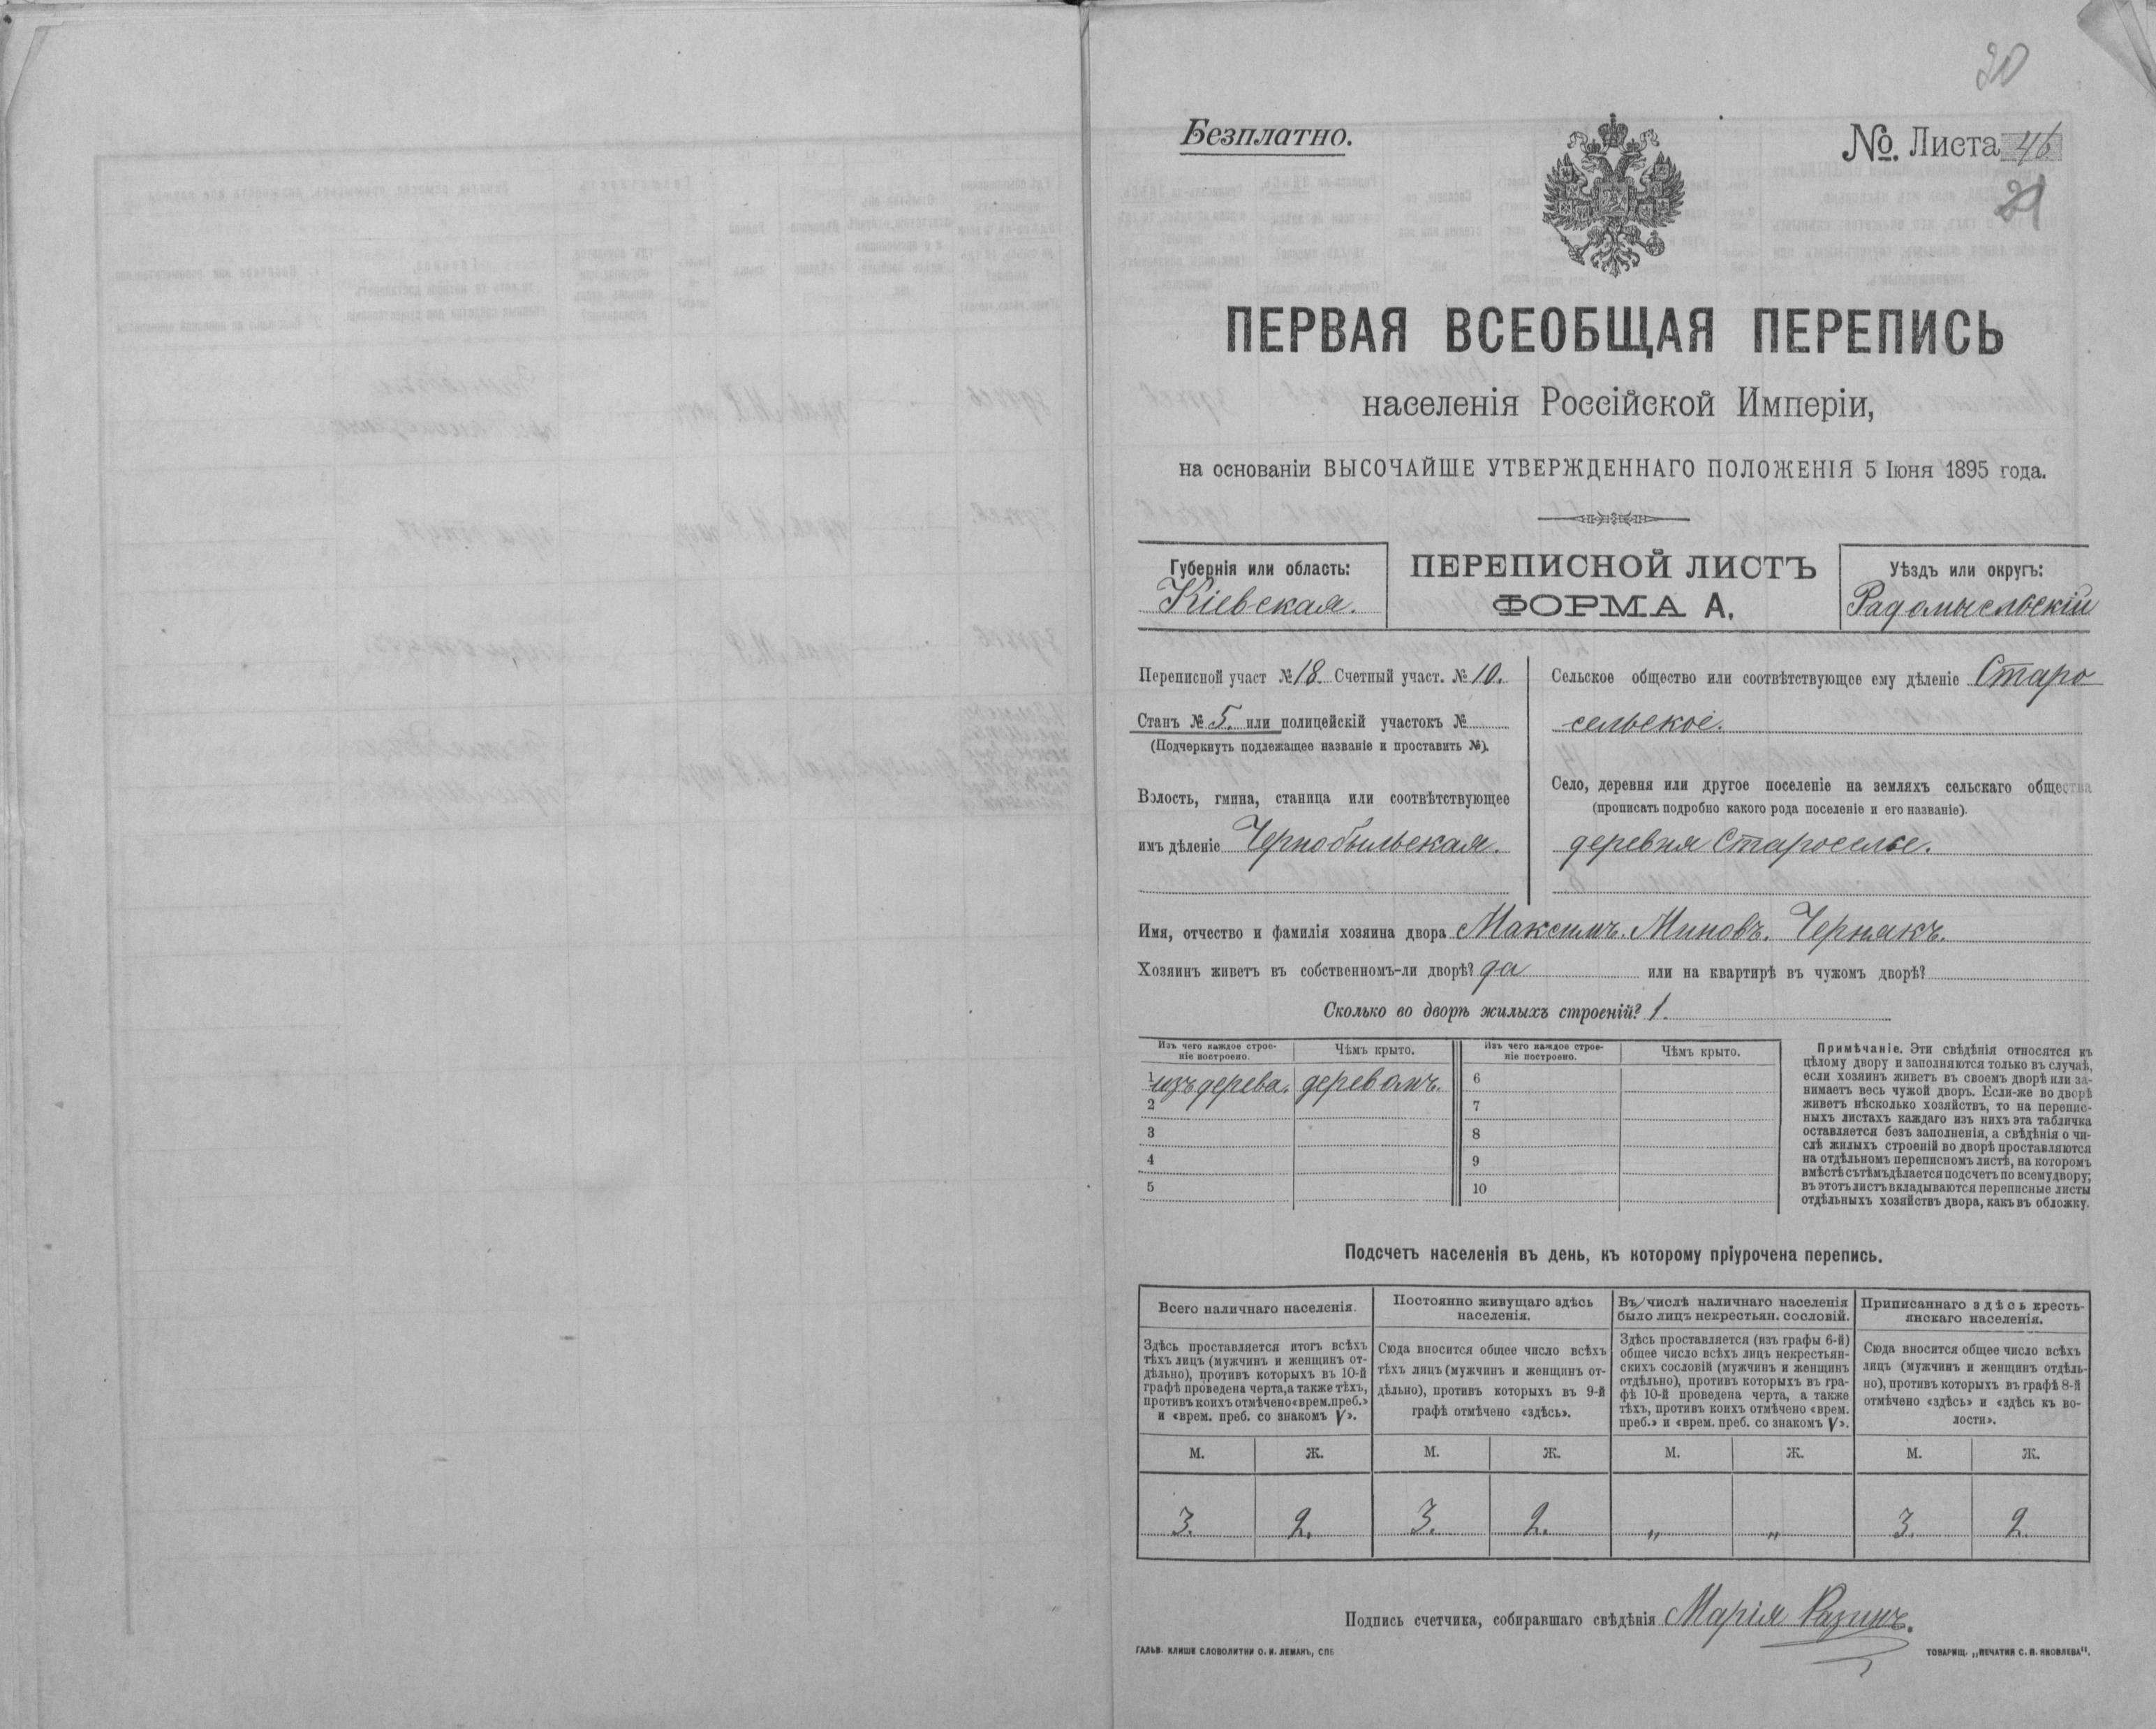 30
Безплатно.
№ Листа 46
21
ПЕРВАЯ ВСЕОБЩАЯ ПЕРЕПИСЬ
населенія Россійской Имперіи,
на основаніи ВЫСОЧАЙШЕ УТВЕРЖДЕННАГО ПОЛОЖЕНІЯ 5 Іюня 1895 года.
Губернія или область:
Кіевская.
ПЕРЕПИСНОЙ ЛИСТЪ
ФОРМА А.
Уѣздъ или округъ:
Радомысльскій
Переписной участ №18. Счетный участ. №10.
Станъ № 5. или полицейскій участокъ №
(Подчеркнуть подлежащее названіе и проставить №).
Волость, гмина, станица или соотвѣтствующее
имъ дѣленіе Чернобыльская.
Сельское общество или соотвѣтствующее ему дѣленіе Старо
сельское.
Село, деревня или другое поселеніе на земляхъ сельскаго общества
(прописать подробно какого рода поселеніе и его названіе).
деревня Староселье.
Имя, отчество и фамилія хозяина двора Максимъ. Миновъ. Чернякъ.
Хозяинъ живетъ въ собственномъ-ли дворѣ? да или на квартирѣ въ чужомъ дворѣ?
Сколько во дворѣ жилыхъ строеній? 1.
Изъ чего каждое строе-
ніе построено.
Чѣмъ крыто.
Изъ чего каждое строе-
ніе построено.
Чѣмъ крыто.
1 изъ дерева. деревомъ. 6
2 7
3 8
4 9
5 10
Примѣчаніе. Эти свѣдѣнія относятся къ
цѣлому двору и заполняются только въ случаѣ,
если хозяинъ живетъ въ своемъ дворѣ или за-
нимаетъ весь чужой дворъ. Если-же во дворѣ
живетъ нѣсколько хозяйствъ, то на перепис-
ныхъ листахъ каждаго изъ нихъ эта табличка
оставляется безъ заполненія, а свѣдѣнія о чи-
слѣ жилыхъ строеній во дворѣ проставляются
на отдѣльномъ переписномъ листѣ, на которомъ
вмѣстѣ съ тѣмъ дѣлается подсчетъ по всему двору;
въ этотъ листъ вкладываются переписные листы
отдѣльныхъ хозяйствъ двора, какъ въ обложку.
Подсчетъ населенія въ день, къ которому пріурочена перепись.
Всего наличнаго населенія.
Здѣсь проставляется итогъ всѣхъ
тѣхъ лицъ (мужчинъ и женщинъ от-
дѣльно), противъ которыхъ въ 10-й
графѣ проведена черта, а также тѣхъ,
противъ коихъ отмѣчено «врем. преб.»
и «врем. преб. со знакомъ V».
Постоянно живущаго здѣсь
населенія.
Сюда вносится общее число всѣхъ
тѣхъ лицъ (мужчинъ и женщинъ от-
дѣльно), противъ которыхъ въ 9-й
графѣ отмѣчено «здѣсь».
Въ числѣ наличнаго населенія
было лицъ некрестьян. сословій.
Здѣсь проставляется (изъ графы 6-й)
общее число всѣхъ лицъ некрестьян-
скихъ сословій (мужчинъ и женщинъ
отдѣльно), противъ которыхъ въ гра-
фѣ 10-й проведена черта, а также
тѣхъ, противъ коихъ отмѣчено «врем.
преб.» и «врем. преб. со знакомъ V».
Приписаннаго здѣсь кресть-
янскаго населенія.
Сюда вносится общее число всѣхъ
лицъ (мужчинъ и женщинъ отдѣль-
но), противъ которыхъ въ графѣ 8-й
отмѣчено «здѣсь» и «здѣсь къ во-
лости».
М. Ж. М. Ж. М. Ж. М. Ж.
3. 2. 3. 2. „ „ 3. 2
Подпись счетчика, собиравшаго свѣдѣнія Марія Разинъ.
ГАЛЬВ. КЛИШЕ СЛОВОЛИТНИ О. И. ЛЕМАНЪ, СПБ
ТОВАРИЩ. „ПЕЧАТНЯ С. П. ЯКОВЛЕВА".